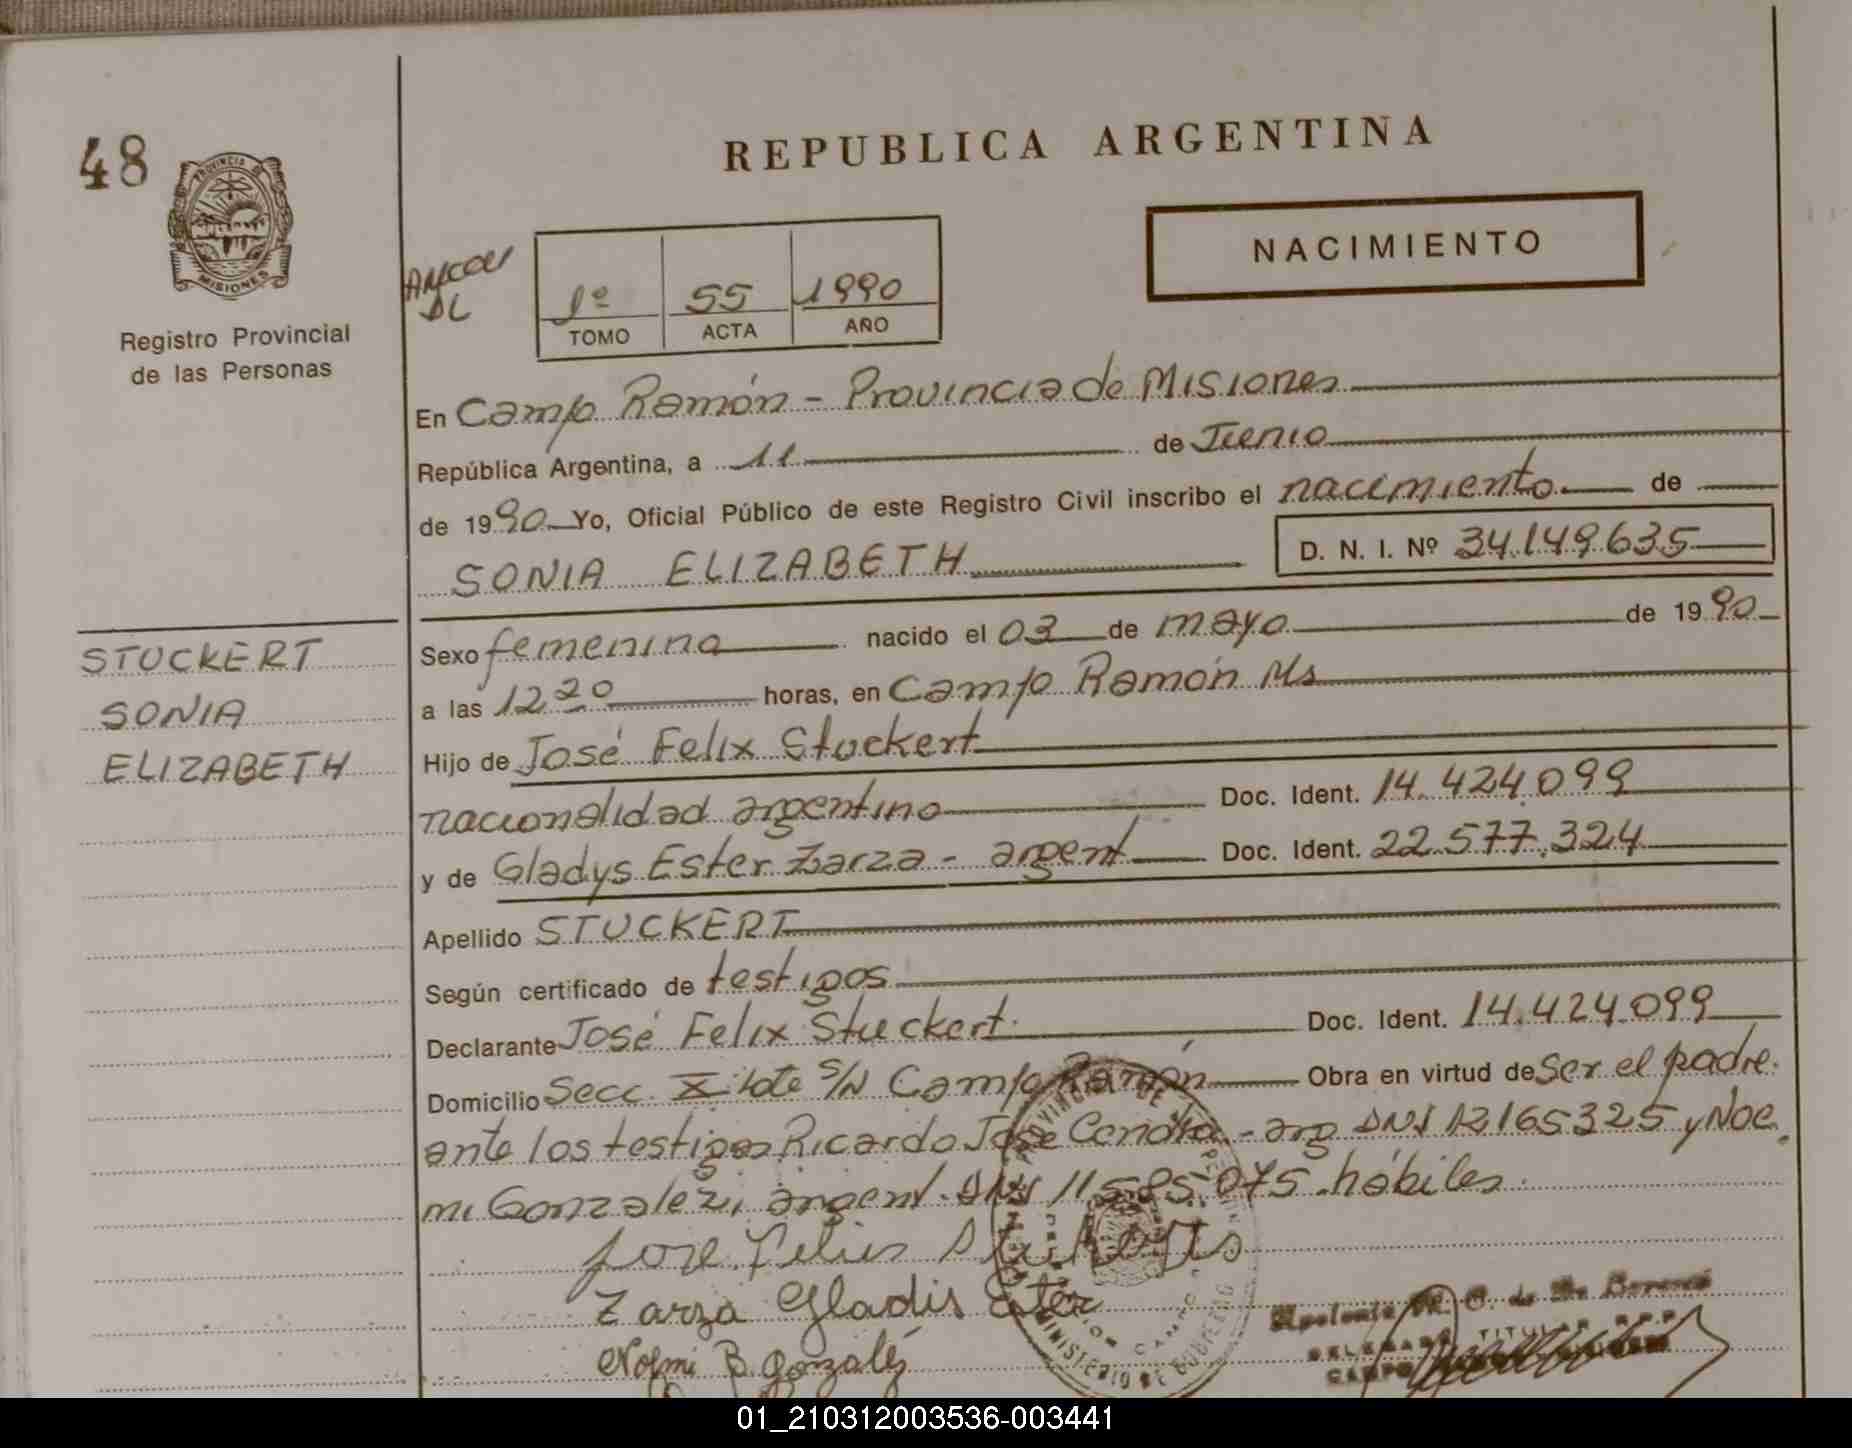 48
PROVINCIA DE
MISIONES
Registro Provincial
de las Personas
REPUBLICA ARGENTINA
NACIMIENTO
1º 55 1990
TOMO ACTA AÑO
En Campo Ramón - Provincia de Misiones
República Argentina, a 11 de Junio
de 1990 Yo, Oficial Público de este Registro Civil inscribo el nacimiento de
SONIA ELIZABETH D. N. I. Nº 34.149.635
STUCKERT
SONIA
ELIZABETH
Sexo femenino nacido el 03 de mayo de 1990
a las 12 20 horas, en Campo Ramón Ms
Hijo de José Felix Stuckert
nacionalidad argentino Doc. Ident. 14.424.099
y de Gladys Ester Zarza - argent Doc. Ident. 22.577.324
Apellido STUCKERT
Según certificado de testigos
Declarante José Felix Stuckert Doc. Ident. 14.424.099
Domicilio Secc. X lote S/N Campo Ramón Obra en virtud de ser el padre.
ante los testigos Ricardo José - arg DNI 12165325 y Noe
mi Gonzalez, argent. DNI 11585.075 hábiles.
Jose Felix
Zarza Gladis Ester
Noemi B. Gonzalez
MINISTERIO DE GOBIERNO
TITULAR R.P.P.
CAMPO
01_210312003536-003441